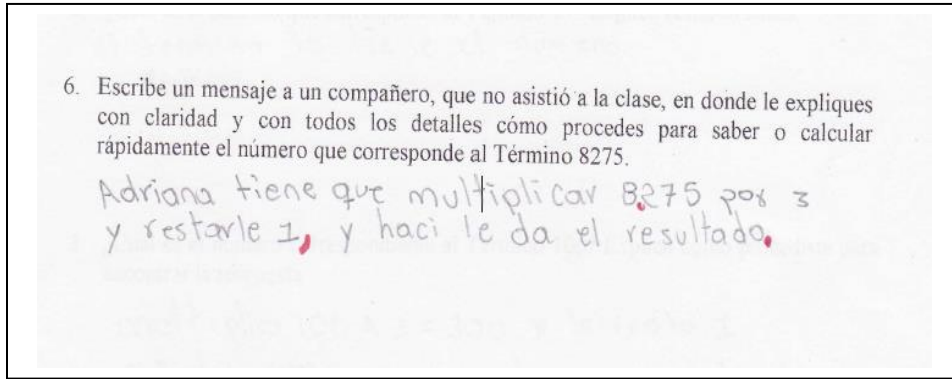 6. Escribe un mensaje a un compañero, que no asistió a la clase, en donde le expliques
con claridad y con todos los detalles cómo procedes para saber o calcular
rápidamente el número que corresponde al Término 8275.
Adriana tiene que multiplicar 8,275 por 3
y restarle 1, y haci le da el resultado.